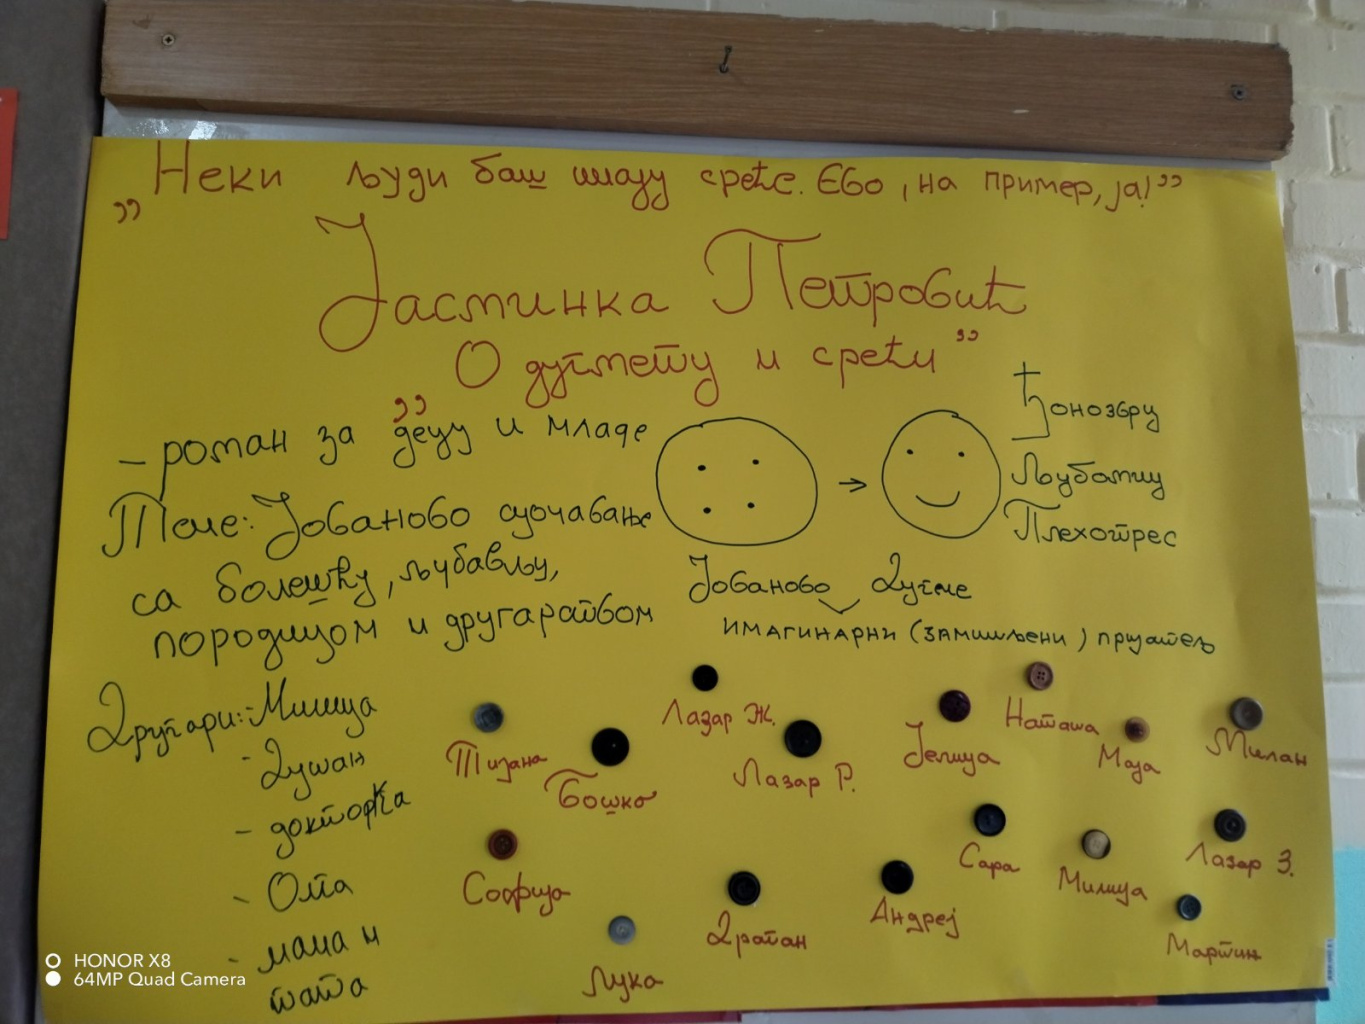 „Неки људи баш имају среће. Ево, на пример, ја!”
Јасминка Петровић
„О дугмету и срећи”
- роман за децу и младе
Теме: Јованово суочавање
са болешћу, љубављу,
породицом и другарством
Јованово Дугме
имагинарни (замишљени) пријатељ
Ђонозбру
Љубатиу
Плехотрес
Другари: - Милица
- Душан
- докторка
- Олга
- мама и
тата
Лазар Ж.
Тијана
Бошко
Лазар Р.
Јелица
Наташа
Маја
Милан
Софија
Сара
Милица
Лазар З.
Лука
Драган
Андреј
Мартин
HONOR X8
64MP Quad Camera